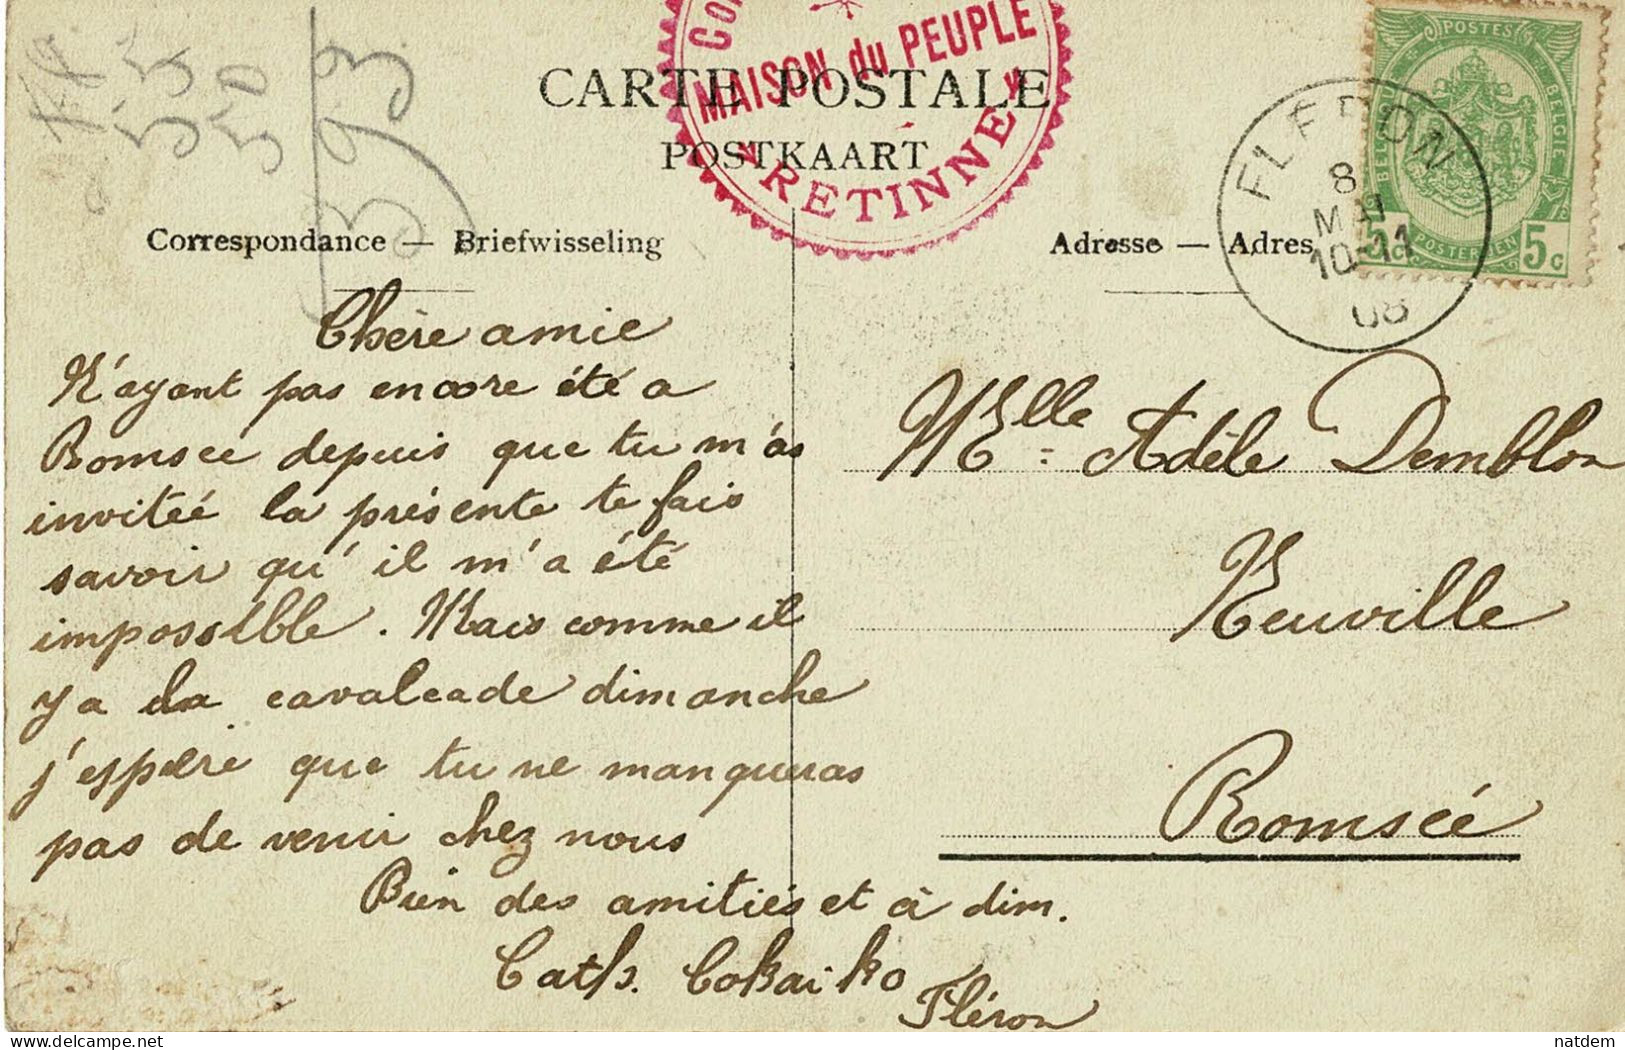 MAISON du PEUPLE
RETINNE
CARTE POSTALE
POSTKAART
POSTES
BELGIQUE
BELGIE
5c
POSTERIJEN
5c
FLERON
8
MAI
10-11
08
Correspondance — Briefwisseling
Adresse — Adres
Chère amie
N'ayant pas encore été a
Romsée depuis que tu m'as
invitée la présente te fais
savoir qu'il m'a été
impossible. Mais comme il
y a la cavalcade dimanche
j'espère que tu ne manqueras
pas de venir chez nous
Bien des amitiés et à dim.
Cath. Cokaiko
Fléron
Melle Adèle Demblon
Neuville
Romsée
natdem